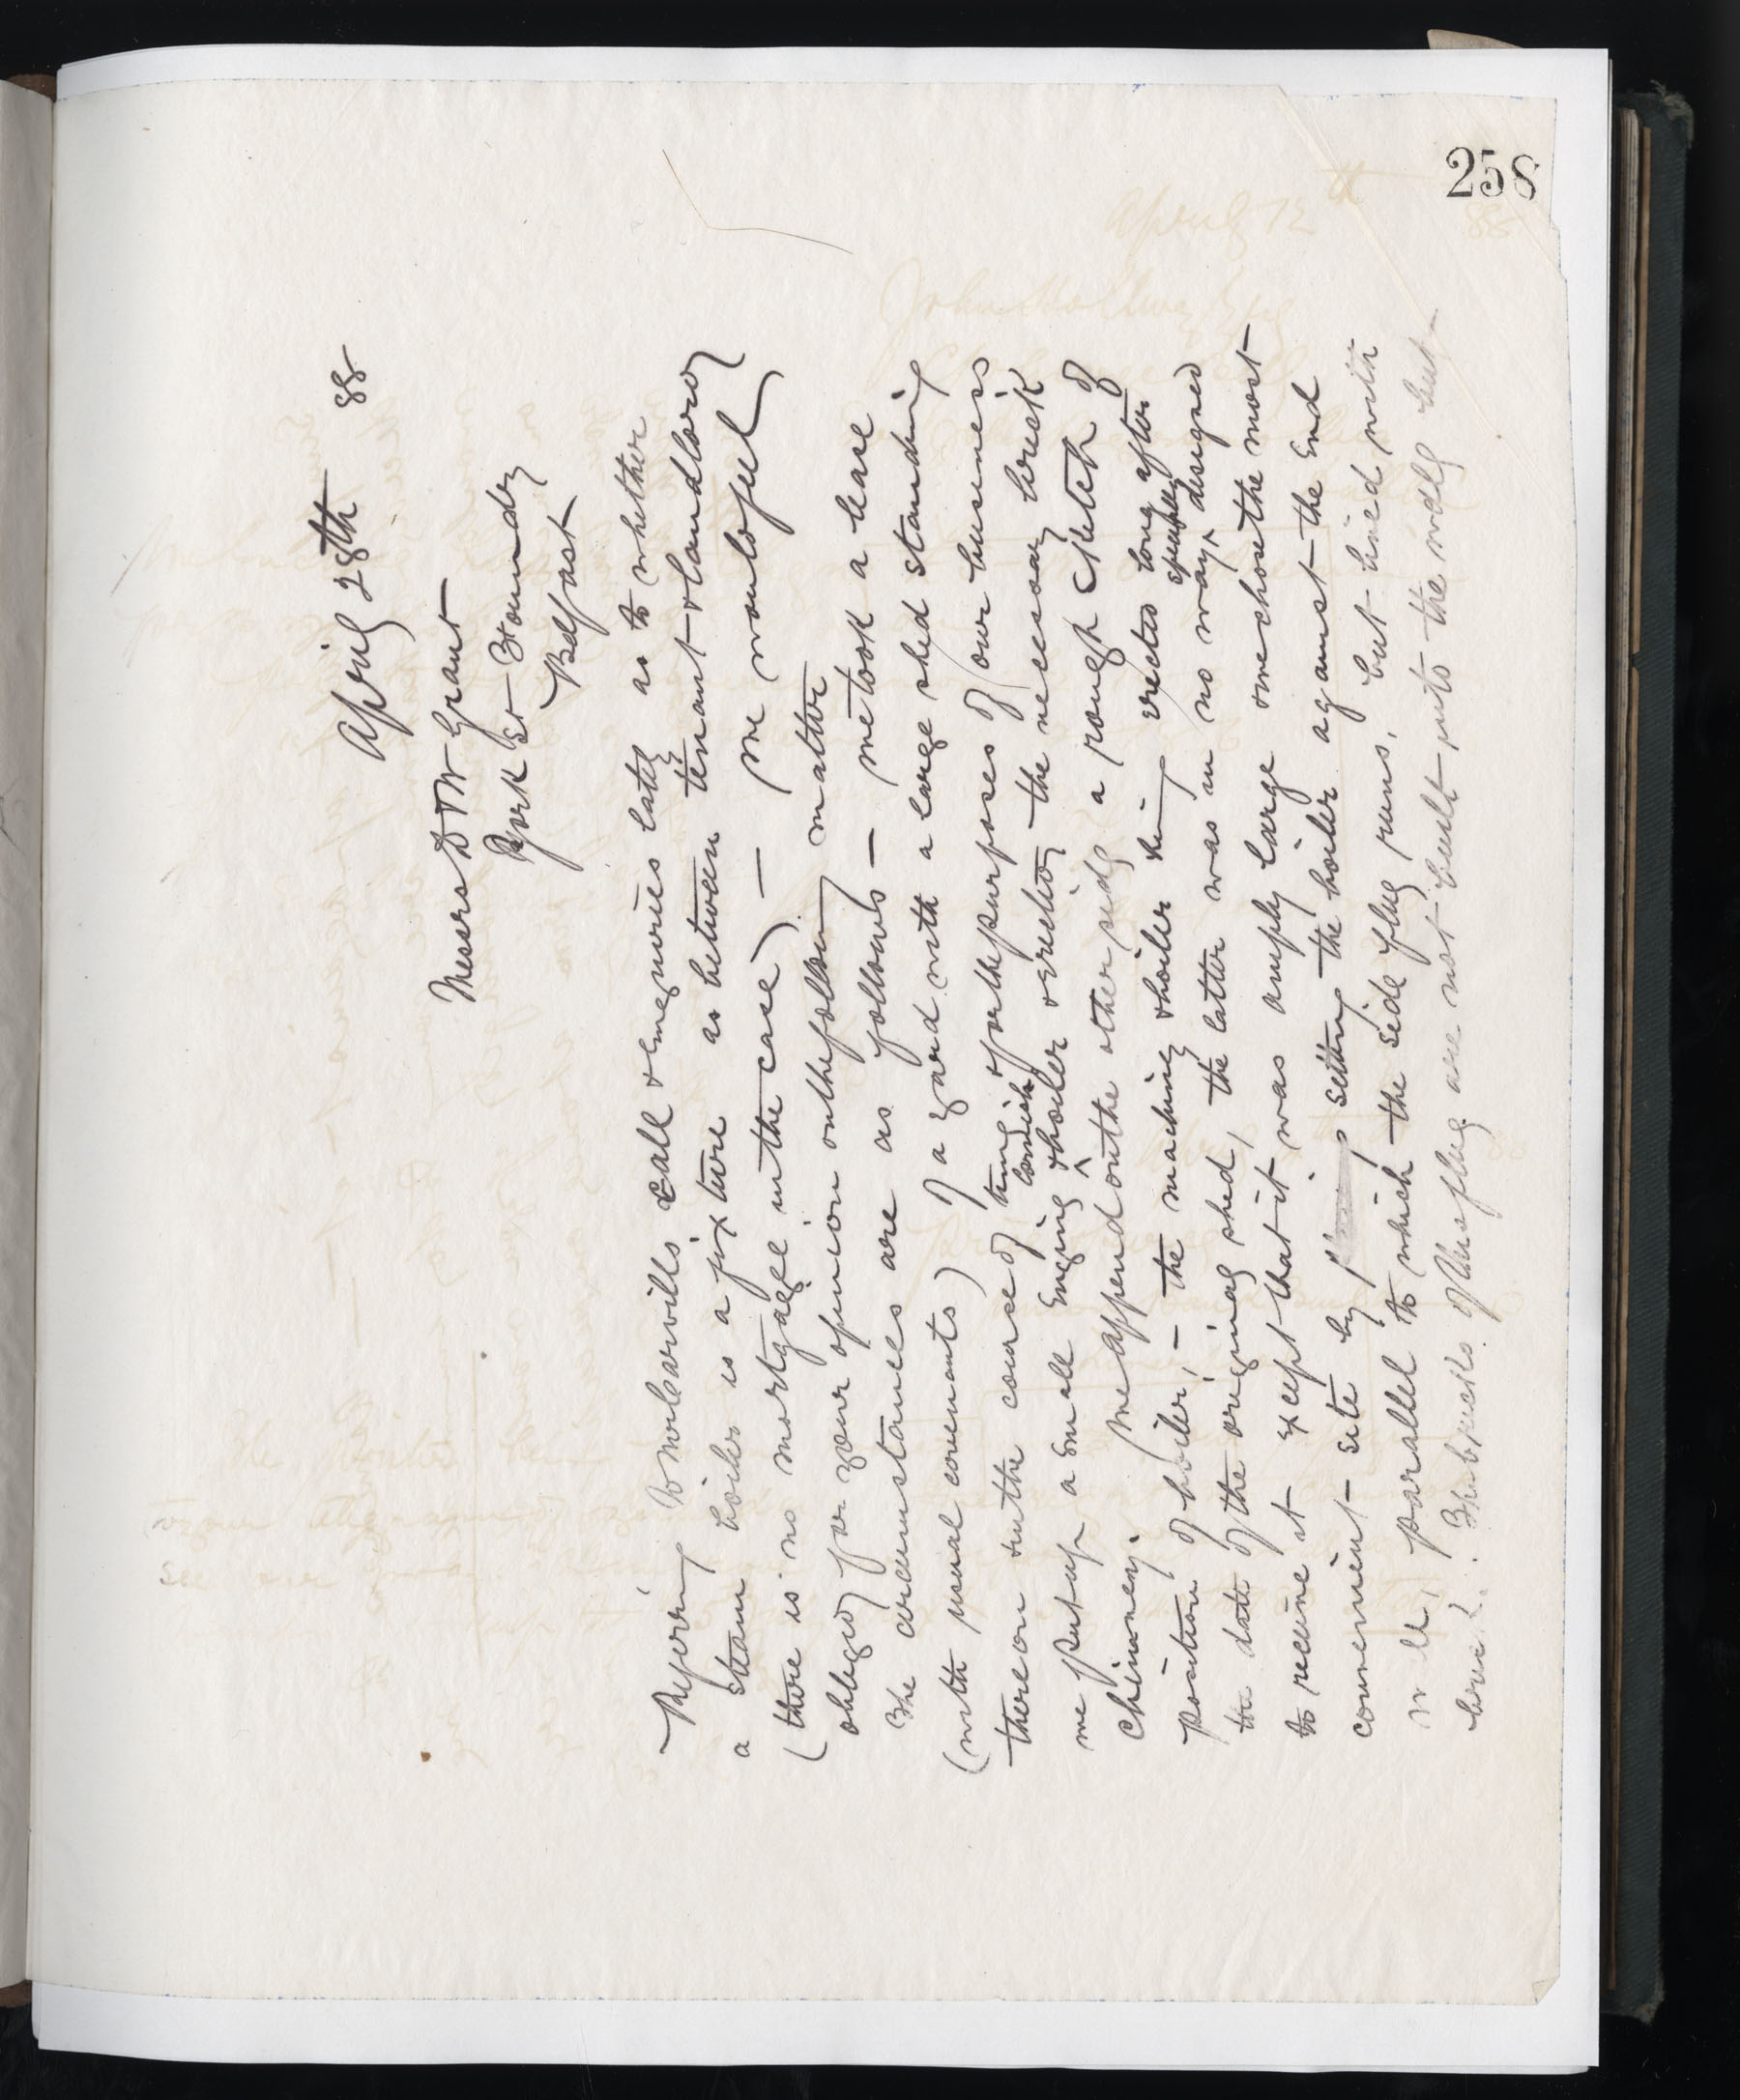 258
April 28th 88
Messrs D & W Grant
York St Foundry
Belfast
Referring to our call & enquiries lately as to whether
a steam boiler is a fixture as between tenant & landlord
(there is no mortgage in the case) — we would feel
obliged for your opinion on the following matter
The circumstances are as follows — we took a lease
(with usual covenants) of a yard with a large shed standing
thereon & in the course of time & for the purposes of our business
we put up a small Engine ^ Cornish & boiler & erected the necessary brick
chimney. We append on the other side a rough sketch of
position of boiler, — the machinery & boiler being erected long after
the date of the original shed, the latter was in no way ^ specially designed
to receive it except that it was amply large & we chose the most
convenient site by setting the boiler against the end
wall, parallel to which the side flue runs, but lined with
brick. The bricks of this flue are not built into the wall but